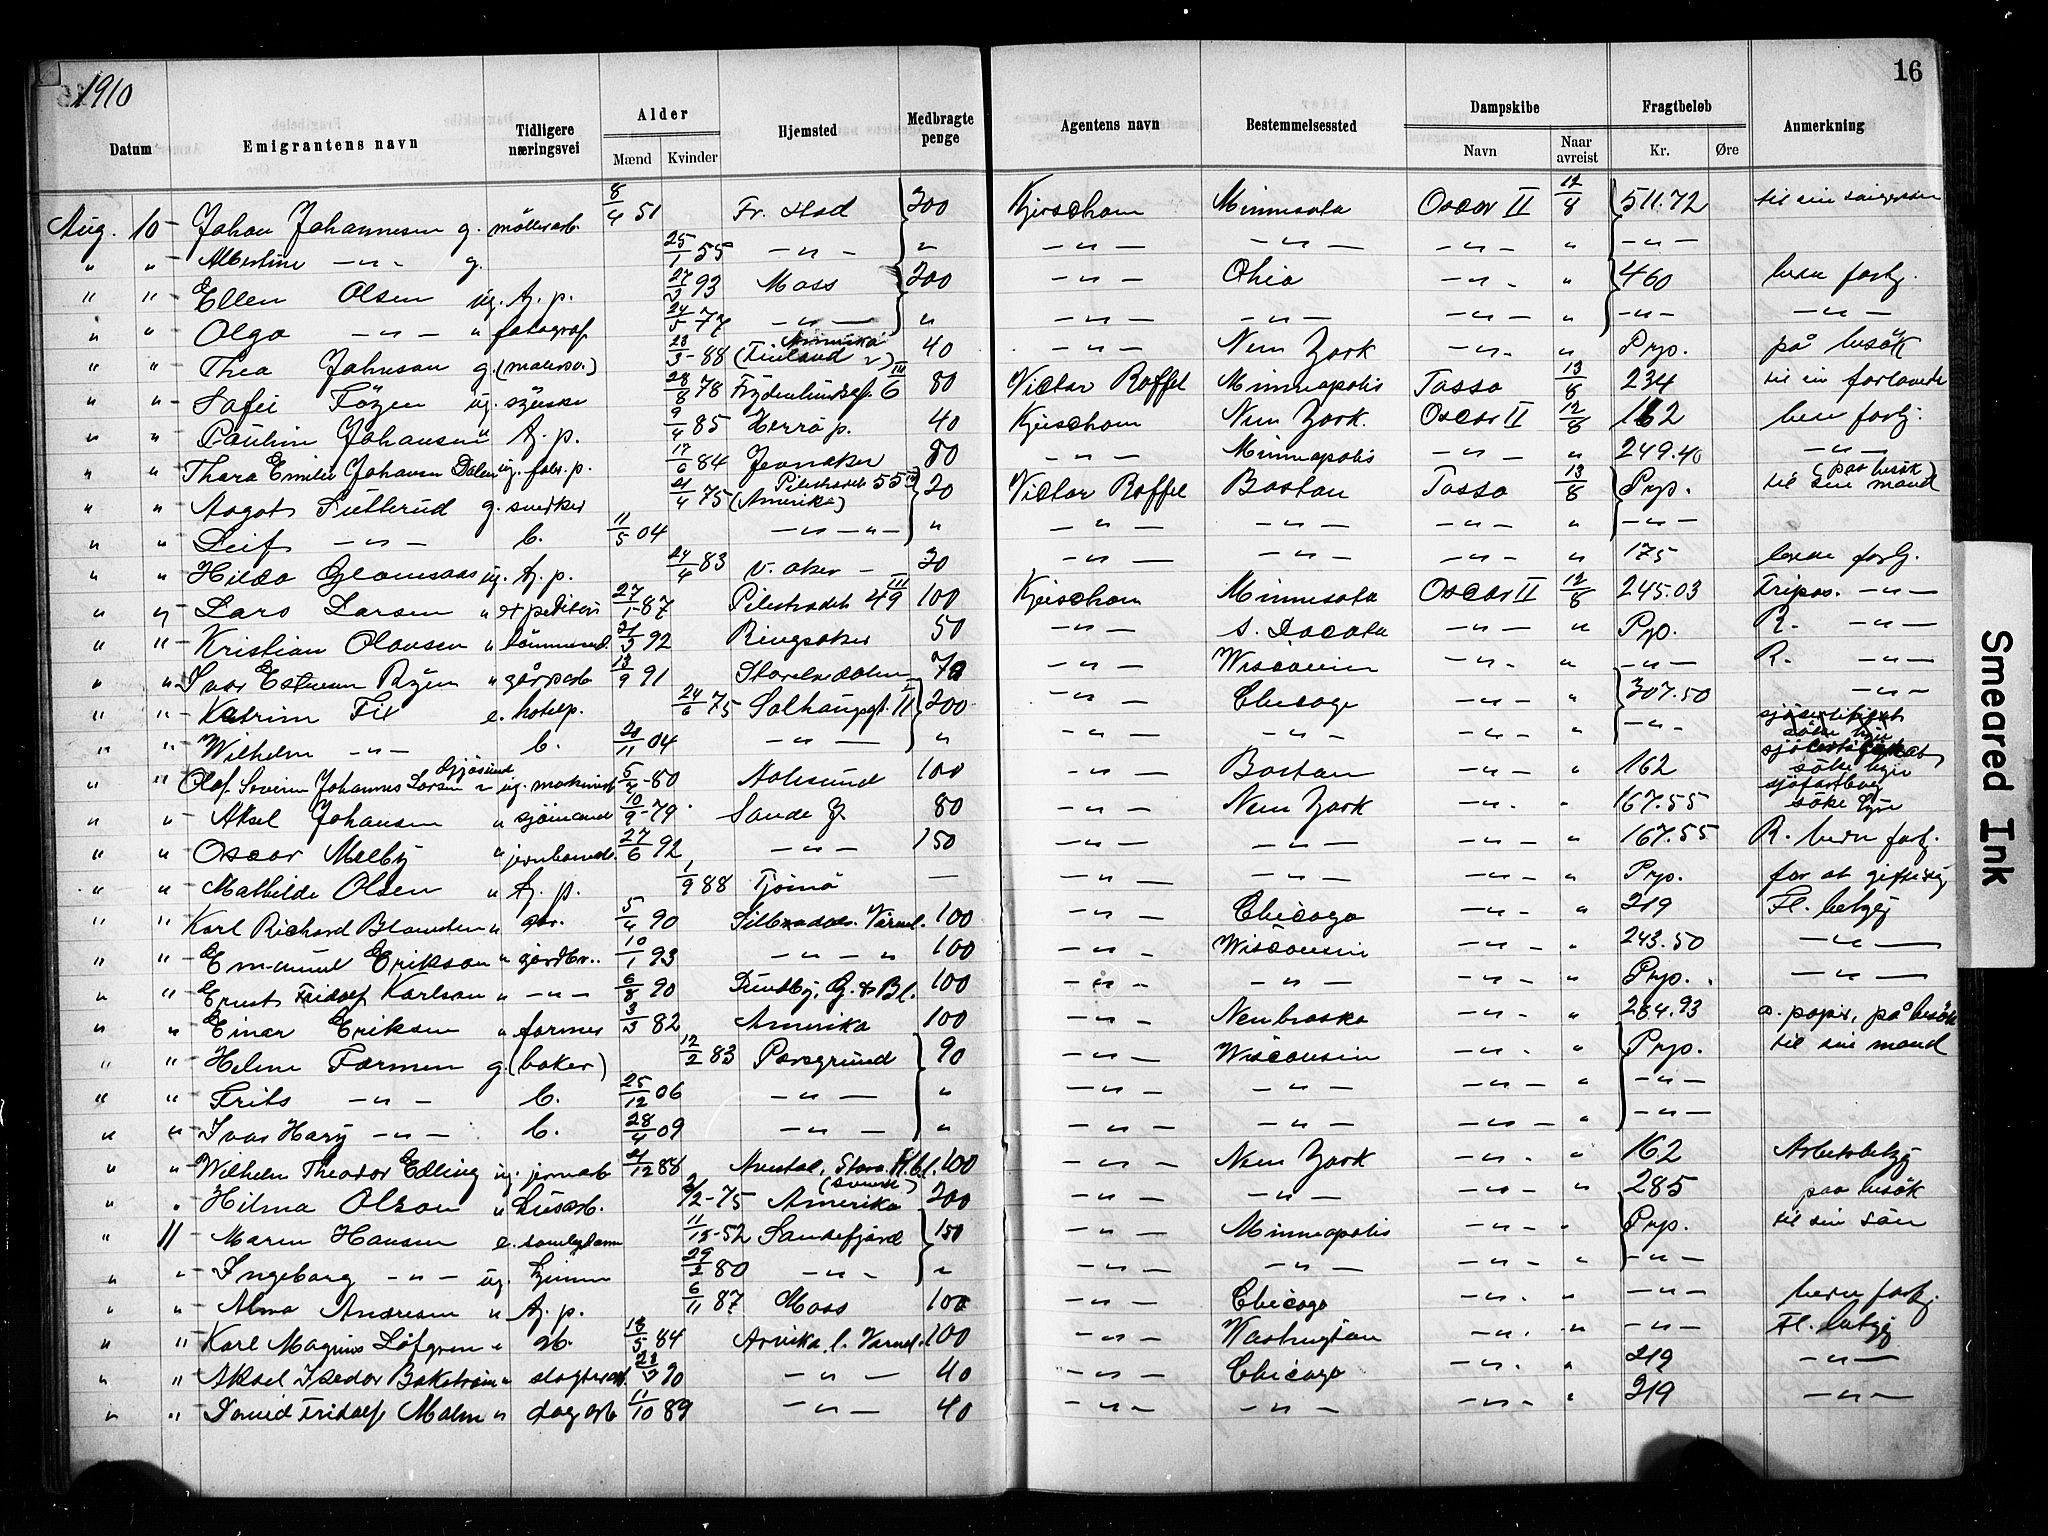 1910
16
Datum Emigrantens navn Tidligere næringsvei Alder Mænd Kvinder Hjemsted Medbragte penge Agentens navn Bestemmelsessted Dampskibe Navn Naar avreist Fragtbeløb Kr. Øre Anmerkning
Aug. 10 - Johan Johannesen g. möllerarb. 8/4 51 Fr. stad 200 Minnesota Oscar II 12/8 511.72 til sin
" " - Albertine - " - g. 25/1 55 - " - " - " - - " - - " - " - " -
" " - Ellen Olsen ug. tj. p. 27/3 93 Moss 200 - " - Ohio - " - " 460 bedre fortj.
" " - Olga - " - " fotograf 24/5 77 - " - " - " - - " - - " - " - " - - " -
" " - Thea Johnson g. 23/3 - 88 (Finland Amerika 40 - " - New York - " - " Prp. på besök
" " - Sofie ug. syerske 28/8 78 6 III 80 Victor Roffel Minneapolis Tasso 13/8 234 til sin forlovede
" " - Pauline Johansen " tj. p. 9/4 85 Herrö p. 40 New York. Oscar II 12/8 162 bedre fortj.
" " - Thora Emilie Johansen Dalen ug. fabr. p. 17/6 84 Jevnaker 80 - " - Minneapolis - " - " 249.40 - " -
" " - Aagot Lutterud g. 21/4 75 Pilestrædet 55 (Amerika) 20 Victor Roffel Boston Tasso 13/8 Prp. til sin mand (paa besök)
" " - Leif - " - b. 11/5 04 - " - " - " - " - - " - - " - " - " -
" " - Hilda ug. tj. p. 24/4 83 V. Aker - 30 - " - - " - - " - " 175 bedre fortj.
" " - Lars Larsen " expeditör 27/1 - 87 Pilestrædet 49 III 100 Minnesota Oscar II 12/8 245.03 Tripos. - " -
" " - Kristian Olavsen " 21/3 92 Ringsaker 50 - " - S. Dacota - " - " Prp. R. - " -
" " - Ivar " gårdsarb 13/9 91 70 - " - Wisconsin - " - " - " - R. - " -
" " - Katrine e. hotelp. 24/6 75 Solhaugst. 11 200 - " - Chicago - " - " 307.50 - " -
" " - Wilhelm - " - b. 20/11 04 - " - " - " - - " - - " - " - " -
" " - Olaf Severin Johannes Larsen ug. maskinist 5/2 - 80 Aalesund 100 - " - Boston - " - " 162 söke hyre
" " - Aksel Johansen " sjömand 10/9 - 79 Sande J. 80 - " - New York - " - " 167.55 söke hyre
" " - Oscar Melby " 27/6 92 - " - 150 - " - - " - - " - " 167.55 R. bedre fortj.
" " - Mathilde Olsen " tj. p. 1/9 88 Tjömö - - " - - " - - " - " Prp. for at gifte sig
" " Karl Richard " 5/4 90 Värml. 100 - " - Chicago - " - " 219 Fl. betyg
" " - Emanuel Erikson " gårdbr. 10/1 93 - " - " 100 - " - Wisconsin - " - " 243.50 - " -
" " - Ernst Fridolf Karlson " - " - 6/8 90 Sundby, G. & Bl. 100 - " - - " - - " - " Prp. - " -
" " - Einar Eriksen " farmer 3/3 82 Amerika 100 - " - Nenbraska - " - " 264.93 a. papir, på besök
" " - Helene Formen g. (baker) 12/2 83 Porsgrund 90 - " - Wisconsin - " - " Prp. til sin mand
" " - Frits - " - b. 25/12 06 - " - " - " - - " - - " - " - " -
" " - Ivar Hary - " - b. 28/4 09 - " - " - " - - " - - " - " - " -
" " - Wilhelm Theodor Edling ug. jernarb 21/12 88 Avestad, Stora Kbl. 100 - " - New York - " - " 162 Arbetsbetyg
" " - Hilma Olson " husarb. 2/2 - 75 Amerika 200 - " - - " - - " - " 285 paa besök
" 11 - Maren Hansen e. 11/12 - 52 Sandefjord 150 - " - Minneapolis - " - " Prp. til sin sön
" " - Ingeborg - " - ug. hjemme 29/2 80 - " - " - " - - " - - " - " - " -
" " - Alma Andresen " tj. p. 6/11 87 Moss 100 - " - Chicago - " - " - " - bedre fortj.
" " - Karl Magnus Löfgren " arb. 13/5 84 Arvika l. Värml. 100 - " - Washington - " - " - " - Fl. betyg
" " - Aksel Isedor Bakström " 23/3 90 - " - 40 - " - Chicago - " - " 219 - " -
" " - David Fridolf Malm " dagarb 11/10 89 - " - 40 - " - - " - - " - " 219 - " -
Smeared Ink